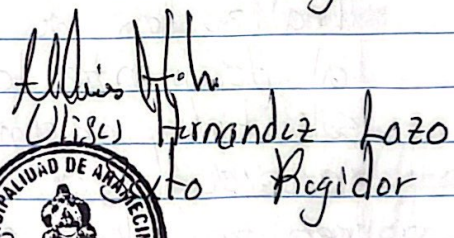 Ulises Hernandez Lazo
Sexto Regidor
CIPALIDAD DE ARAMECIN